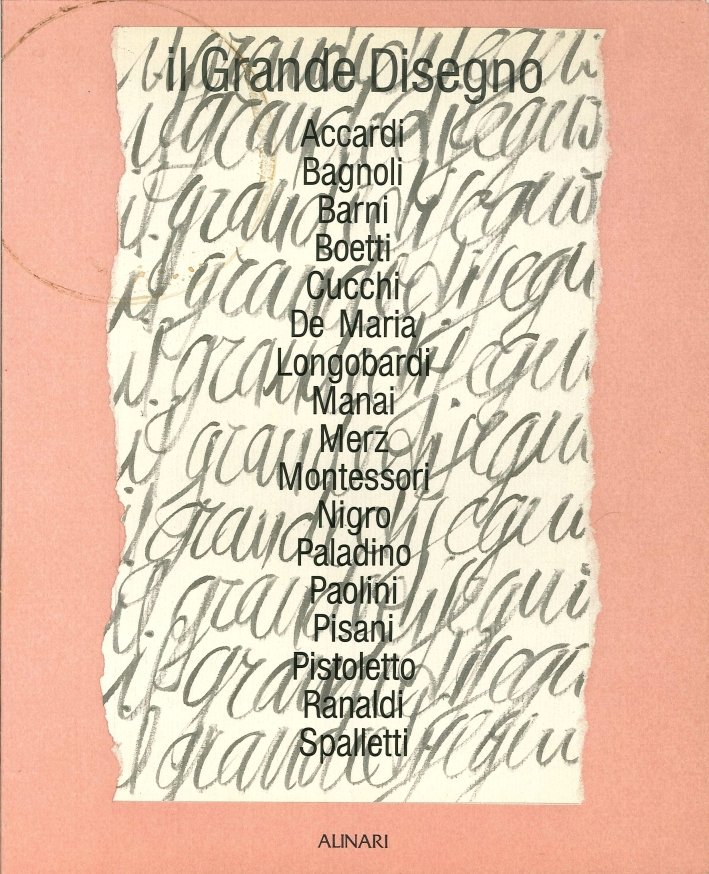 il Grande Disegno
Accardi
Bagnoli
Barni
Boetti
Cucchi
De Maria
Longobardi
Manai
Merz
Montessori
Nigro
Paladino
Paolini
Pisani
Pistoletto
Ranaldi
Spalletti
ALINARI